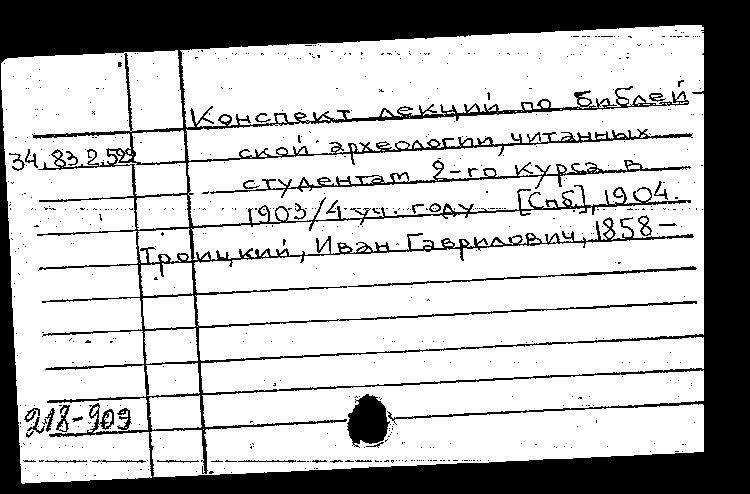 Конспект лекций по библей-
34.83.2.599 ской археологии, читанных
студентам 2-го курса в
1903/4 уч. году [Спб], 1904.
Троицкий, Иван Гаврилович, 1858-
218-909